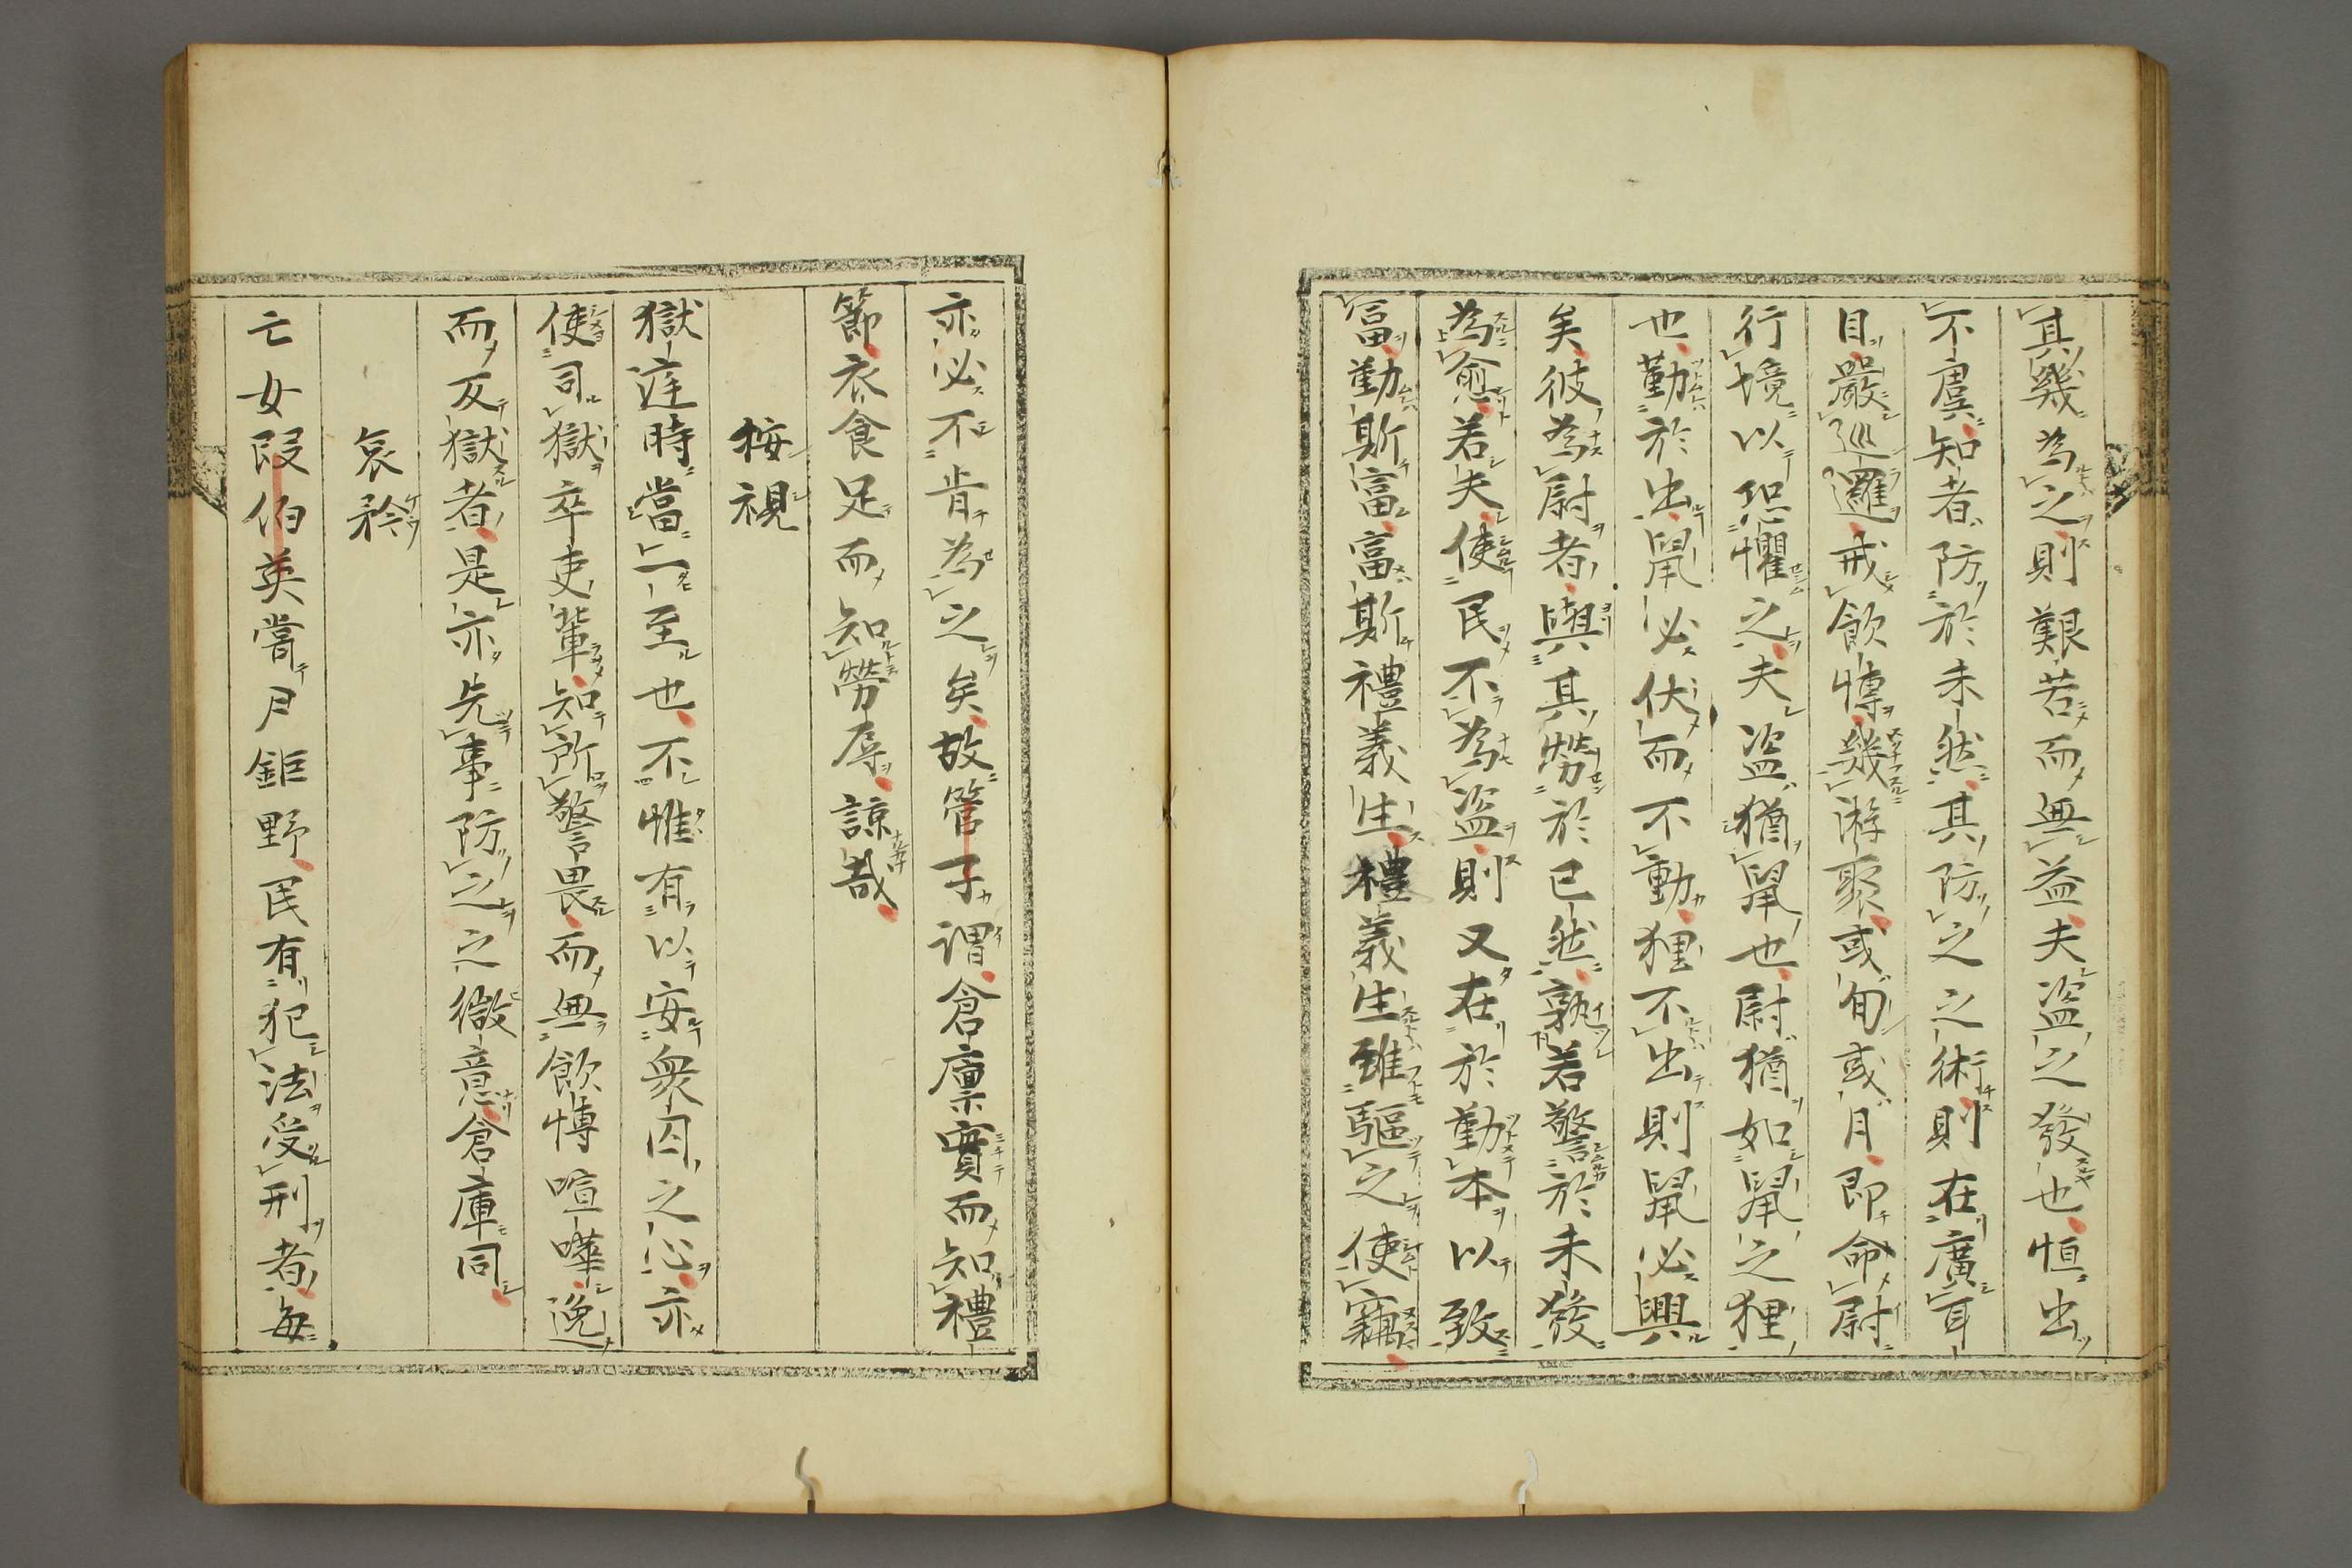 其幾為之則艱苦而無益夫盜之發也恒出
不虞知者防於未然其防之之術則在廣耳
目嚴巡邏戒飲愽幾游聚或旬或月即命尉
行境以恐懼之夫盜猶鼠也尉猶如鼠之狸
也勤於出鼠必伏而不動狸不出則鼠必興
矣彼為尉者與其勞於已然孰若警於未發
為愈若夫使民不為盜則又在於勤本以致
富勤斯富富斯禮義生禮義生雖驅之使竊
亦必不肯為之矣故管子謂倉廩實而知禮
節衣食足而知勞辱諒哉
按視
獄庭時當一至也不惟有以安衆囚之心亦
使司獄卒吏輩知所警畏而無飲愽喧嘩逸
而反獄者是亦先事防之之微意倉庫同
哀矜
亡女段伯英嘗尹鉅野民有犯法受刑者每